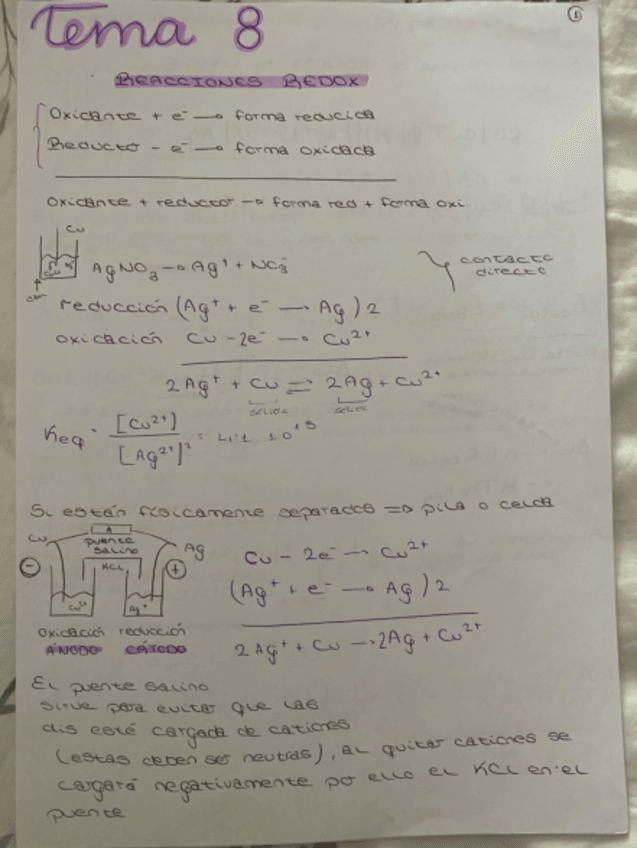 1
Tema 8
REACCIONES REDOX
Oxidante + e⁻ → forma reducida
Reductor - e⁻ → forma oxidada
Oxidante + reductor → forma red + forma oxi
Cu
AgNO₃ → Ag⁺ + NO₃⁻
contacto
directo
reducción (Ag⁺ + e⁻ → Ag) 2
oxidación Cu - 2e⁻ → Cu²⁺
2Ag⁺ + Cu ⇌ 2Ag + Cu²⁺
sólido sólido
Keq = [Cu²⁺] / [Ag²⁺]² = 4,1 10¹⁵
Si están físicamente separados ⇒ pila o celda
A
Cu puente Ag
salino
KCl
- +
Cu²⁺ Ag⁺
oxidación reducción
ÁNODO CÁTODO
Cu - 2e⁻ → Cu²⁺
(Ag⁺ + e⁻ → Ag) 2
2Ag⁺ + Cu → 2Ag + Cu²⁺
El puente salino
sirve para evitar que las
dis esté cargada de cationes
(estas deben ser neutras), al quitar cationes se
cargará negativamente por ello el KCl en el
puente